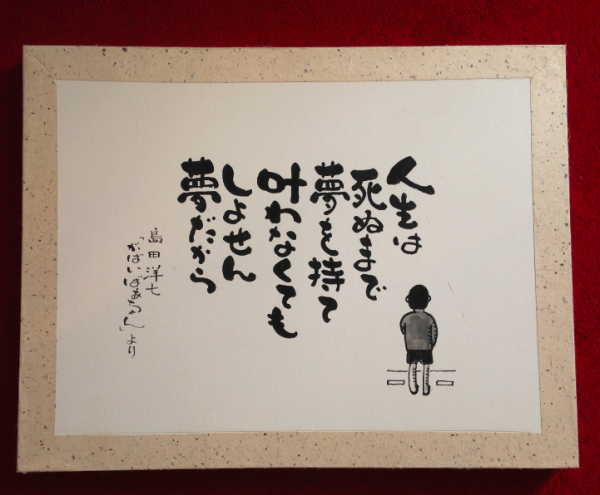 人生は
死ぬまで
夢を持て
叶わなくても
しょせん
夢だから
島田洋七
「がばいばあちゃん」より